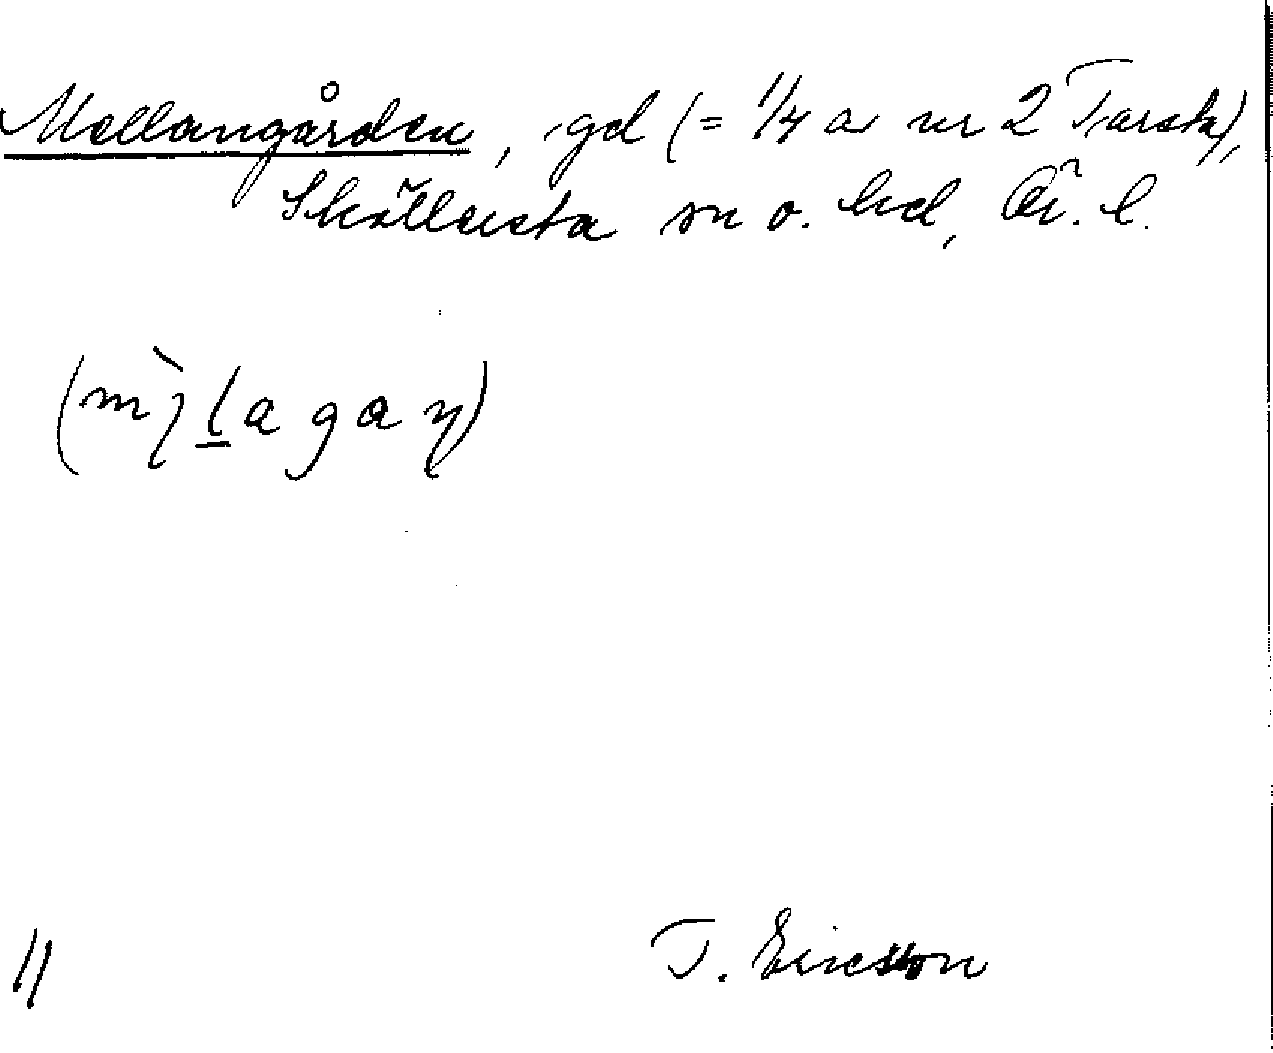 Mellangården, gd (= 1/4 av nr 2 Tarsta),
Sköllersta sn o. hd, Ör. l.
T. Ericsson